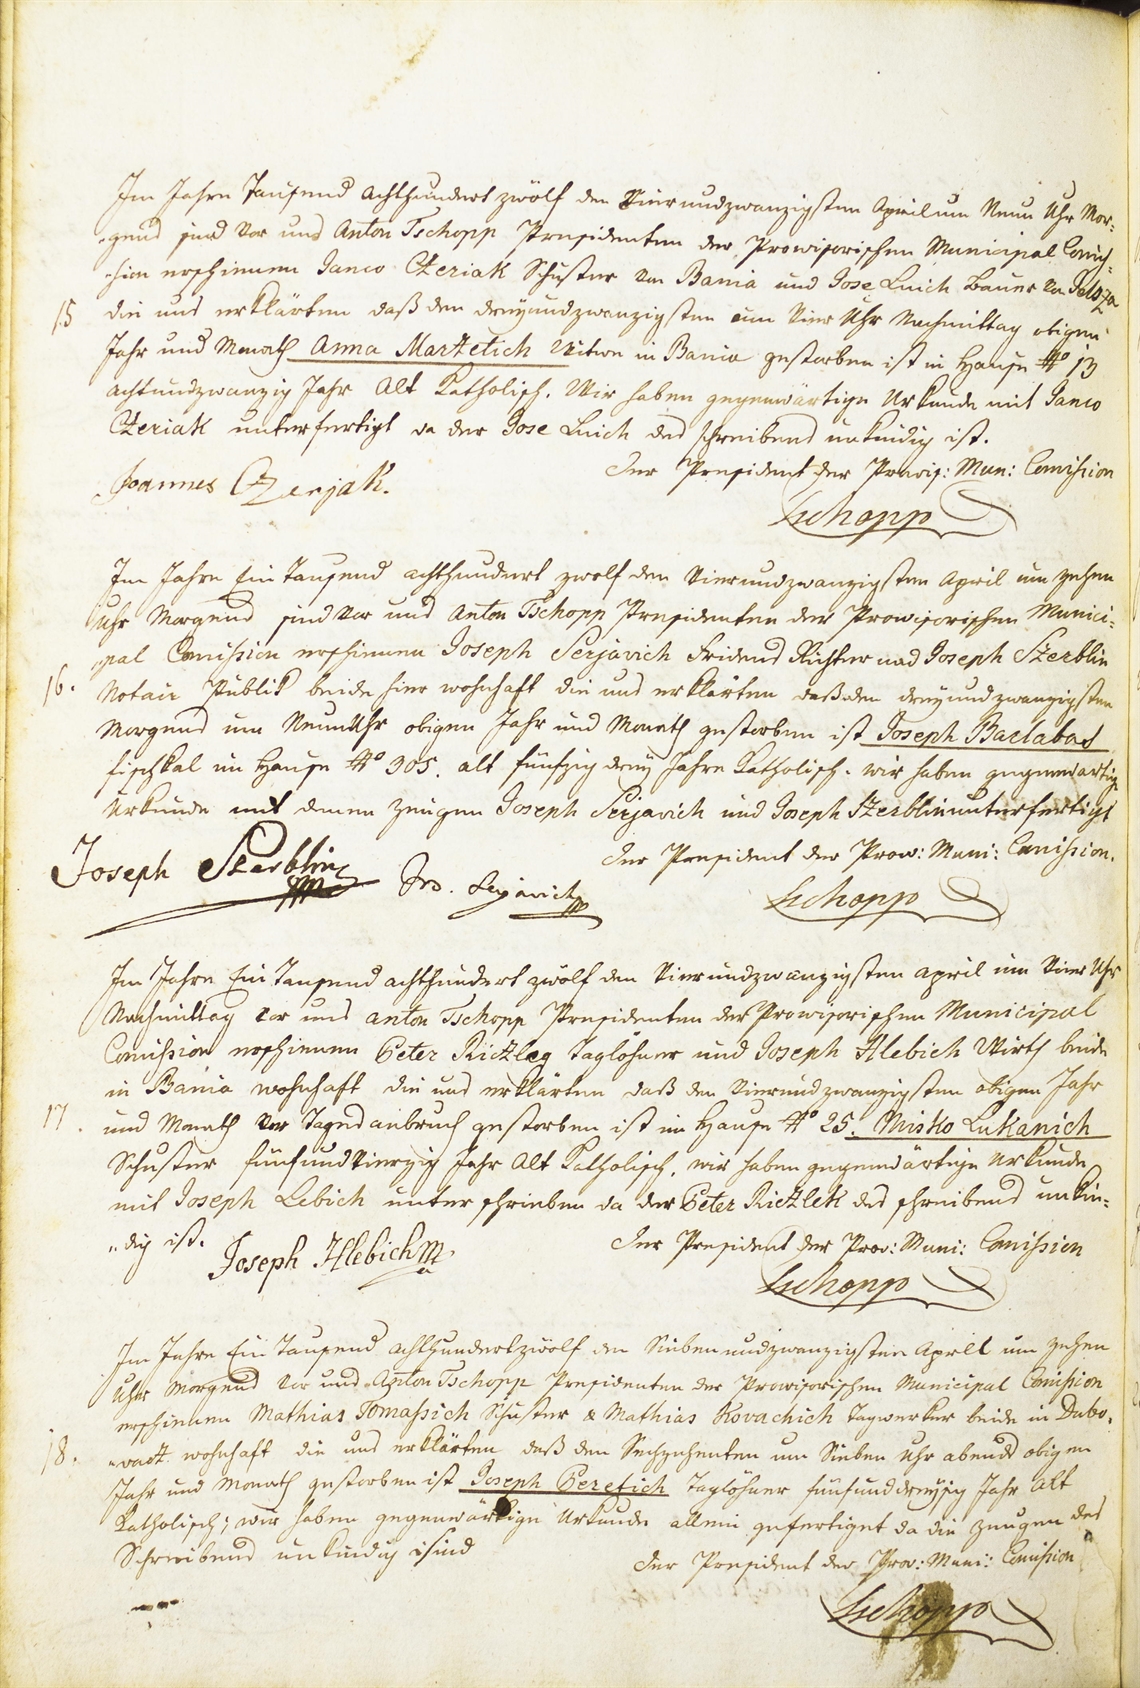 Im Jahre Tausend achthundert zwölf den Vierundzwanzigsten April um Neun Uhr Mor-
gens sind vor uns Anton Tschopp Presidenten der Provisorischen Municipal Comis-
sion erschienen Janco Czeriak Schuster von Bania und Jose Luich Bauer von
15 die uns erklärten daß den dreyundzwanzigsten um Vier Uhr Nachmittag obigen
Jahr und Monath Anna Martetich Witwe in Bania gestorben ist in Hause No 13
achtundzwanzig Jahr Alt Katholisch. Wir haben gegenwärtige Urkunde mit Janco
Czeriak unterfertigt da der Jose Luich des schreibens unkündig ist.
Der President der Provis: Mun: Comission
Joannes Czerjak.
Tschopp
Im Jahre Ein Tausend achthundert zwolf den Vierundzwanzigsten April um zehen
Uhr Morgens sind vor uns Anton Tschopp Presidenten der Prowisorischen Munici-
pal Comission erschienen Joseph Serjavich Fridens Richter und Joseph Szerblin
16. Notair Publik beide hier wohnhaft die uns erklärten daß den dreyundzwanzigsten
Morgens um Neun Uhr obigen Jahr und Monath gestorben ist Joseph Barlabas
fischkal im Hause No 305. alt fünfzig drey Jahre Katholisch. wir haben gegenwärtige
Urkunde mit denen zeugen Joseph Serjavich und Joseph Szerblin unterfertigt
Der President der Prov: Muni: Comission.
Joseph Szerblin Jos. Serjavich
Tschopp
Im Jahre Ein Tausend achthundert zwölf den Vierundzwanzigsten april um Vier Uhr
Nachmittag vor uns anton Tschopp Presidenten der Prowisorischen Municipal
Comission erschienen Peter Rietzleg Taglöhner und Joseph Hlebich Wirth beide
in Bania wohnhaft die uns erklärten daß den Vierundzwanzigsten obigen Jahr
17. und Monath Vor Tagesanbruch gestorben ist im Hause No 25. Misko Lukanich
Schuster fünfundvierzig Jahr Alt Katholisch. wir haben gegenwärtige Urkunde
mit Joseph Lebich unterschrieben da der Peter Rietzlek des schreibens unkün-
dig ist.
Der President der Prov: Muni: Comission
Joseph Hlebich
Tschopp
Im Jahre Ein Tausend achthundert zwölf den Siebenundzwanzigsten April um zehen
Uhr Morgens vor uns Anton Tschopp Presidenten der Prowisorischen Municipal Comission
erschienen Mathias Tomassich Schuster & Mathias Kovachich Tagwerker beide in Dubo-
18. vatz wohnhaft die uns erklärten daß den Sechzehenten um Sieben Uhr abends obigen
Jahr und Monath gestorben ist Joseph Peretich Taglöhner fünfunddreyßig Jahr Alt
Katholisch; wir haben gegenwärtige Urkunde allein gefertiget da die zeugen des
Schreibens unkündig sind
Der President der Prov: Muni: Comission
Tschopp